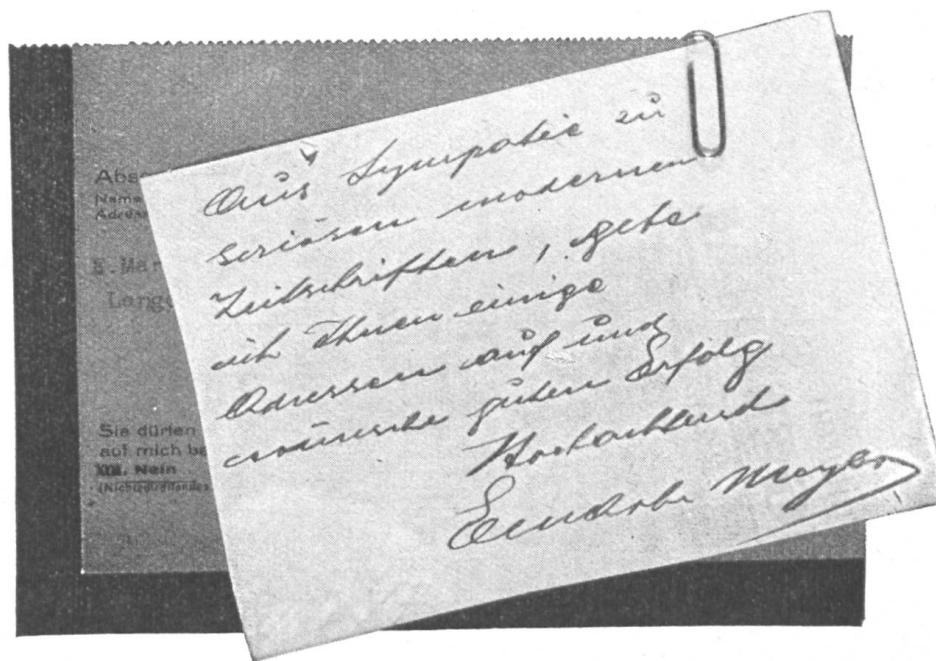 Abs
Name
Adress
E.Mar
Langg
Sie dürfen
auf mich be
Nein
(Nichtzutreffendes
Aus Sympatie zu
seriösen modernen
Zeitschriften, gebe
ich Ihnen einige
Adressen auf und
wünsche guten Erfolg
Hochachtend
Meyer